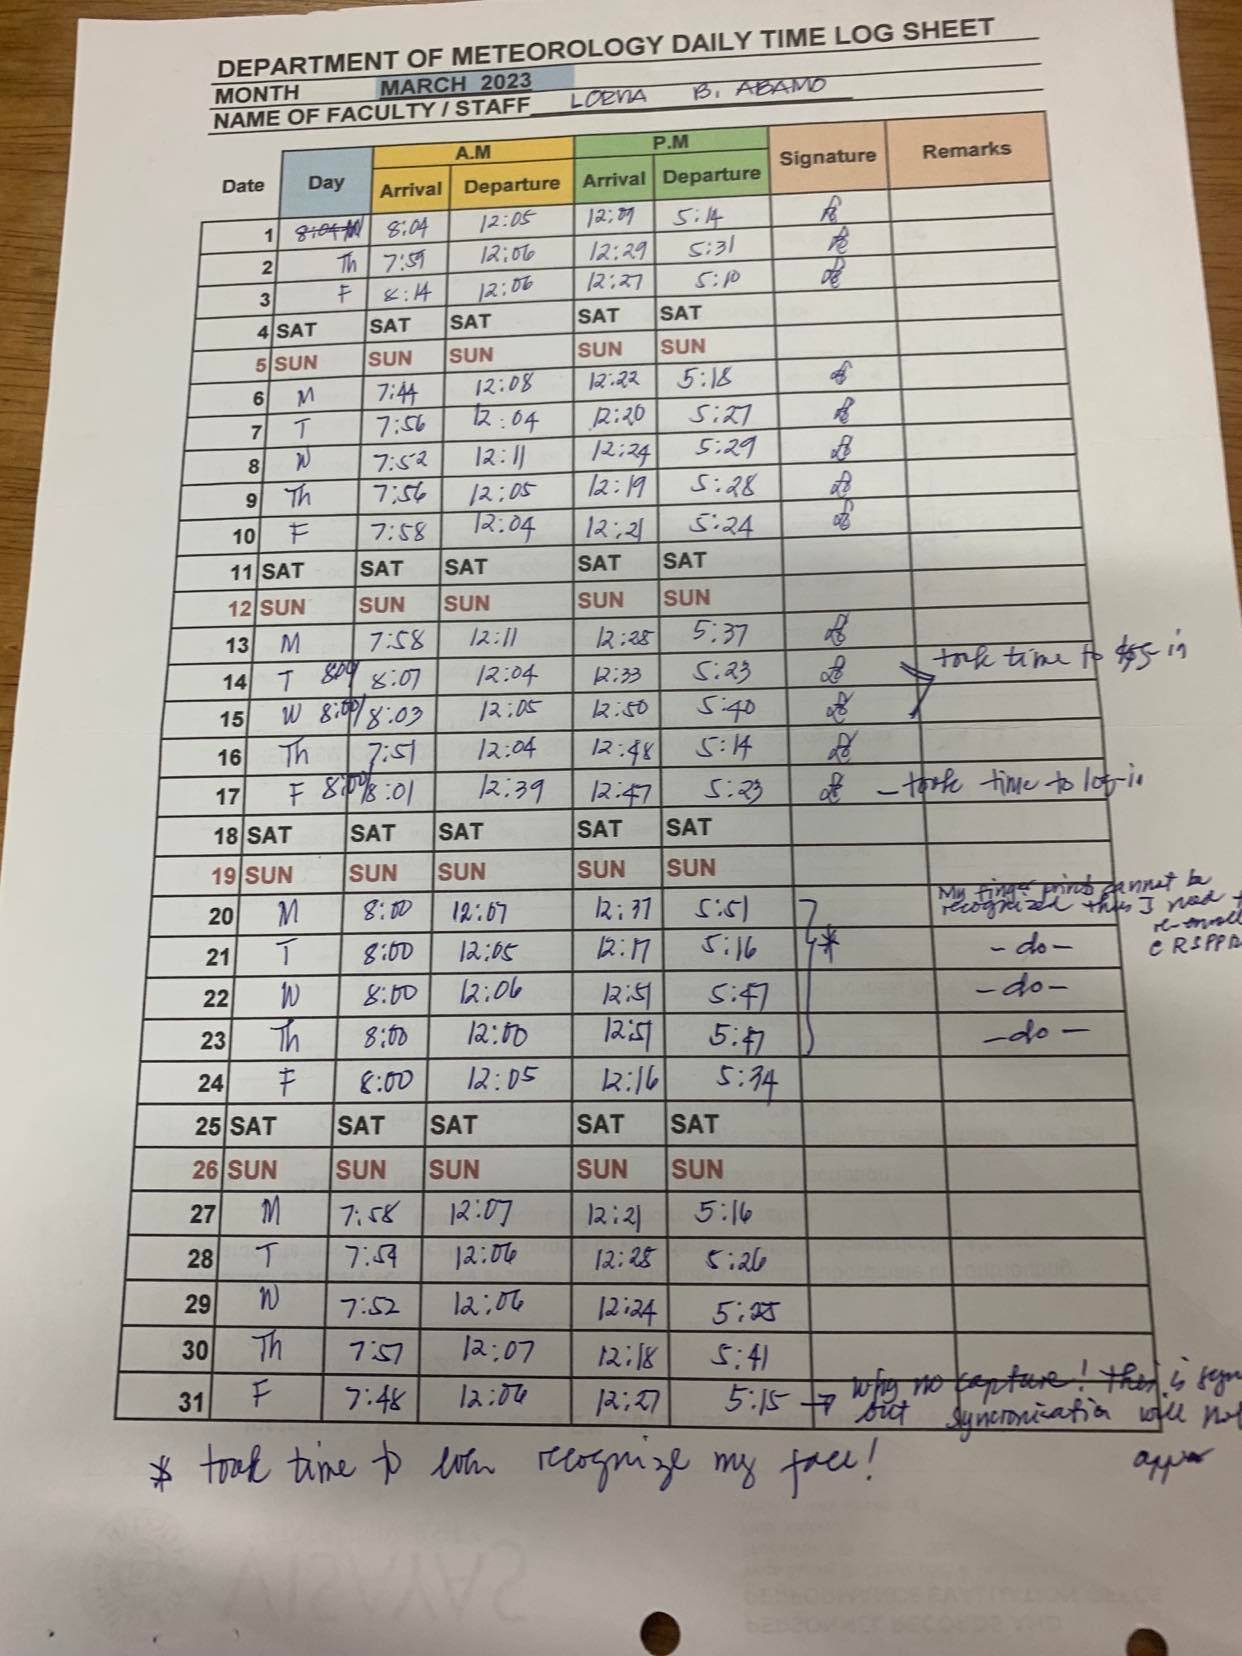 DEPARTMENT OF METEOROLOGY DAILY TIME LOG SHEET
MONTH MARCH 2023
NAME OF FACULTY / STAFF LORNA B. ABAMO
A.M P.M
Date Day Arrival Departure Arrival Departure Signature Remarks
1 8:04 W 8:04 12:05 5:14
2 Th 7:59 12:06 12:29 5:31
3 F 8:14 12:06 12:27 5:10
4 SAT SAT SAT SAT SAT
5 SUN SUN SUN SUN SUN
6 M 7:44 12:08 12:22 5:18
7 T 7:56 12:04 12:20 5:27
8 W 7:52 12:11 12:24 5:29
9 Th 7:56 12:05 12:19 5:28
10 F 7:58 12:04 12:21 5:24
11 SAT SAT SAT SAT SAT
12 SUN SUN SUN SUN SUN
13 M 7:58 12:11 12:28 5:37
14 T 8:07 12:04 12:33 5:23 took time to in
15 W 8:00/8:03 12:05 12:50 5:40
16 Th 7:51 12:04 12:48 5:14
17 F 8:01 12:39 12:47 5:23 - took time to log-in
18 SAT SAT SAT SAT SAT
19 SUN SUN SUN SUN SUN
My finger prints cannot be
20 M 8:00 12:07 12:37 5:51 recognized thus I need
re-enroll
21 T 8:00 12:05 12:17 5:16 * - do -
22 W 8:00 12:06 12:51 5:47 - do -
23 Th 8:00 12:00 12:51 5:47 - do -
24 F 8:00 12:05 12:16 5:34
25 SAT SAT SAT SAT SAT
26 SUN SUN SUN SUN SUN
27 M 7:58 12:07 12:21 5:16
28 T 7:59 12:06 12:28 5:26
29 W 7:52 12:06 12:24 5:25
30 Th 7:57 12:07 12:18 5:41
31 F 7:48 12:06 12:27 5:15 → why no capture! is
but will not
* took time to recognize my face!